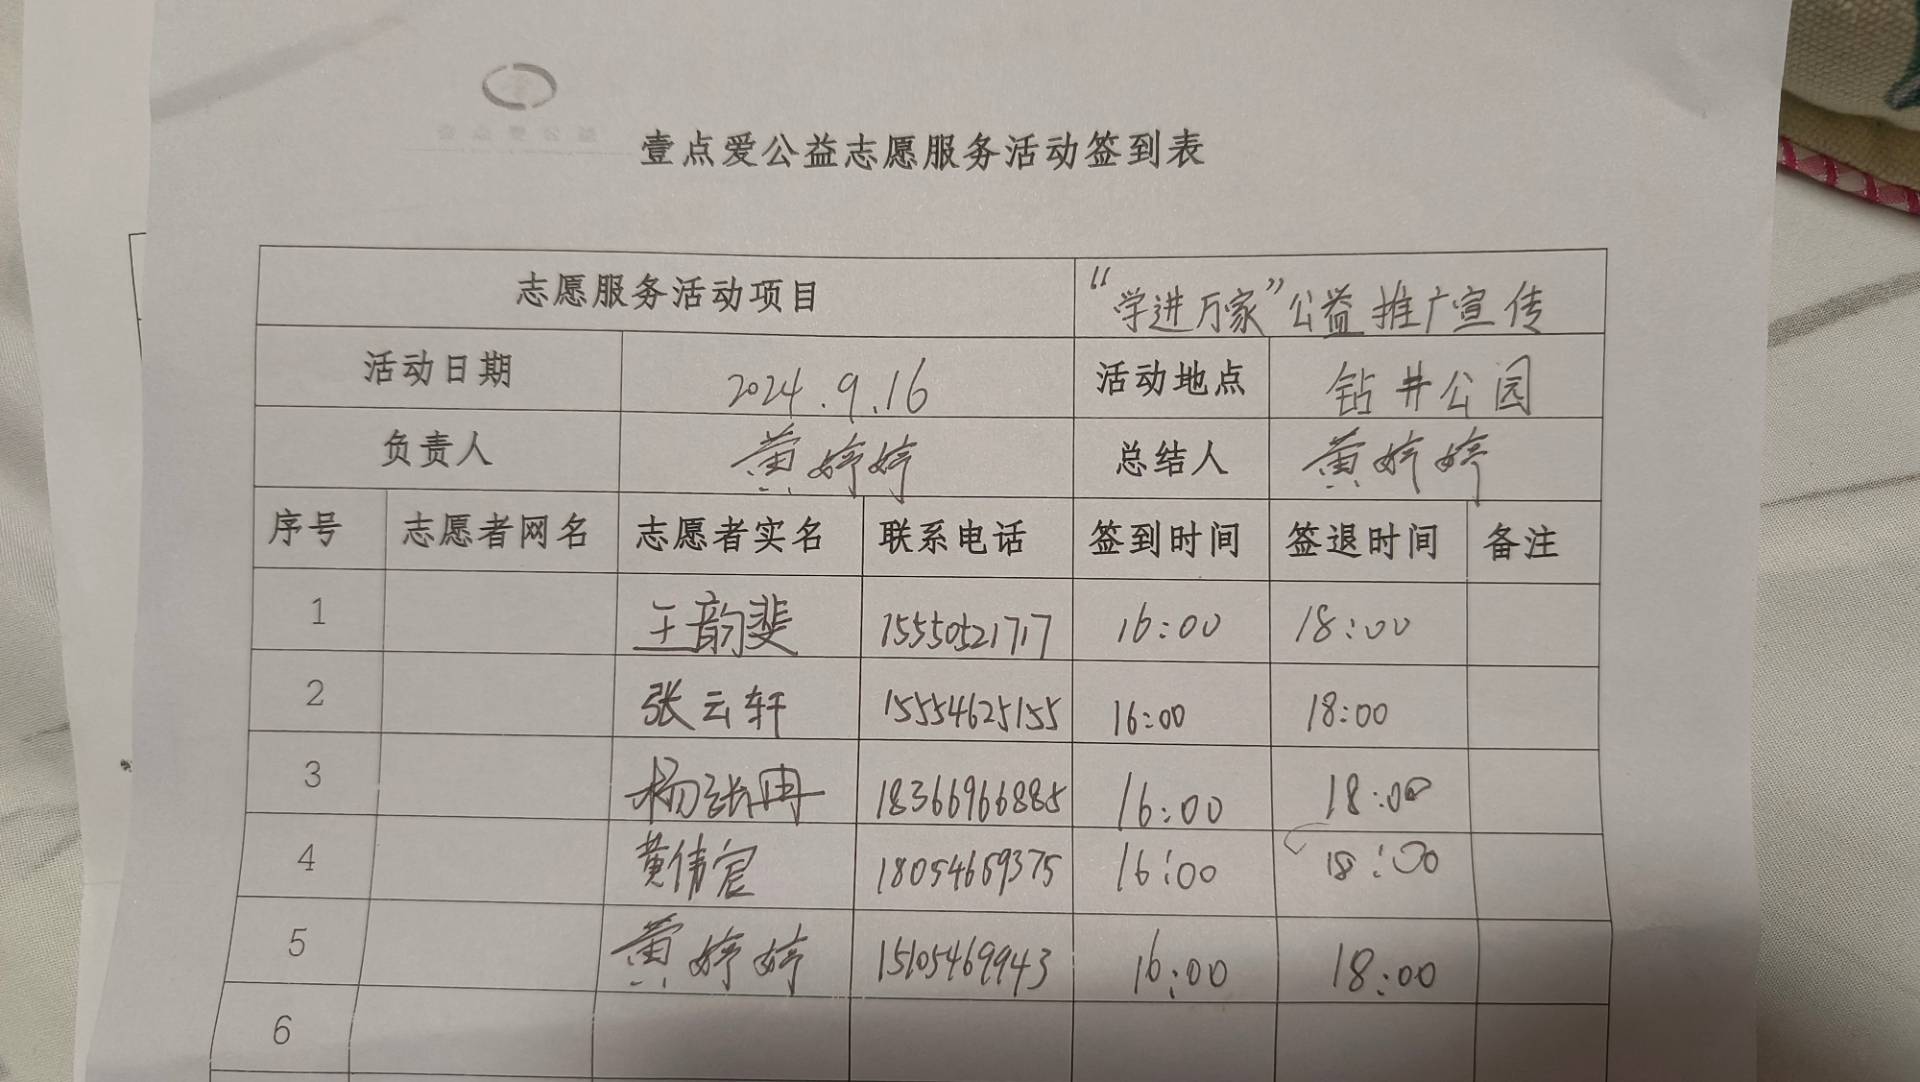 壹点爱公益志愿服务活动签到表
志愿服务活动项目 “学进万家”公益推广宣传
活动日期 2024.9.16 活动地点 钻井公园
负责人 黄婷婷 总结人 黄婷婷
序号 志愿者网名 志愿者实名 联系电话 签到时间 签退时间 备注
1 王韵斐 15550521717 16:00 18:00
2 张云轩 15554625155 16:00 18:00
3 杨张冉 18366966885 16:00 18:00
4 黄伟宸 18054659375 16:00 18:00
5 黄婷婷 15105469943 16:00 18:00
6